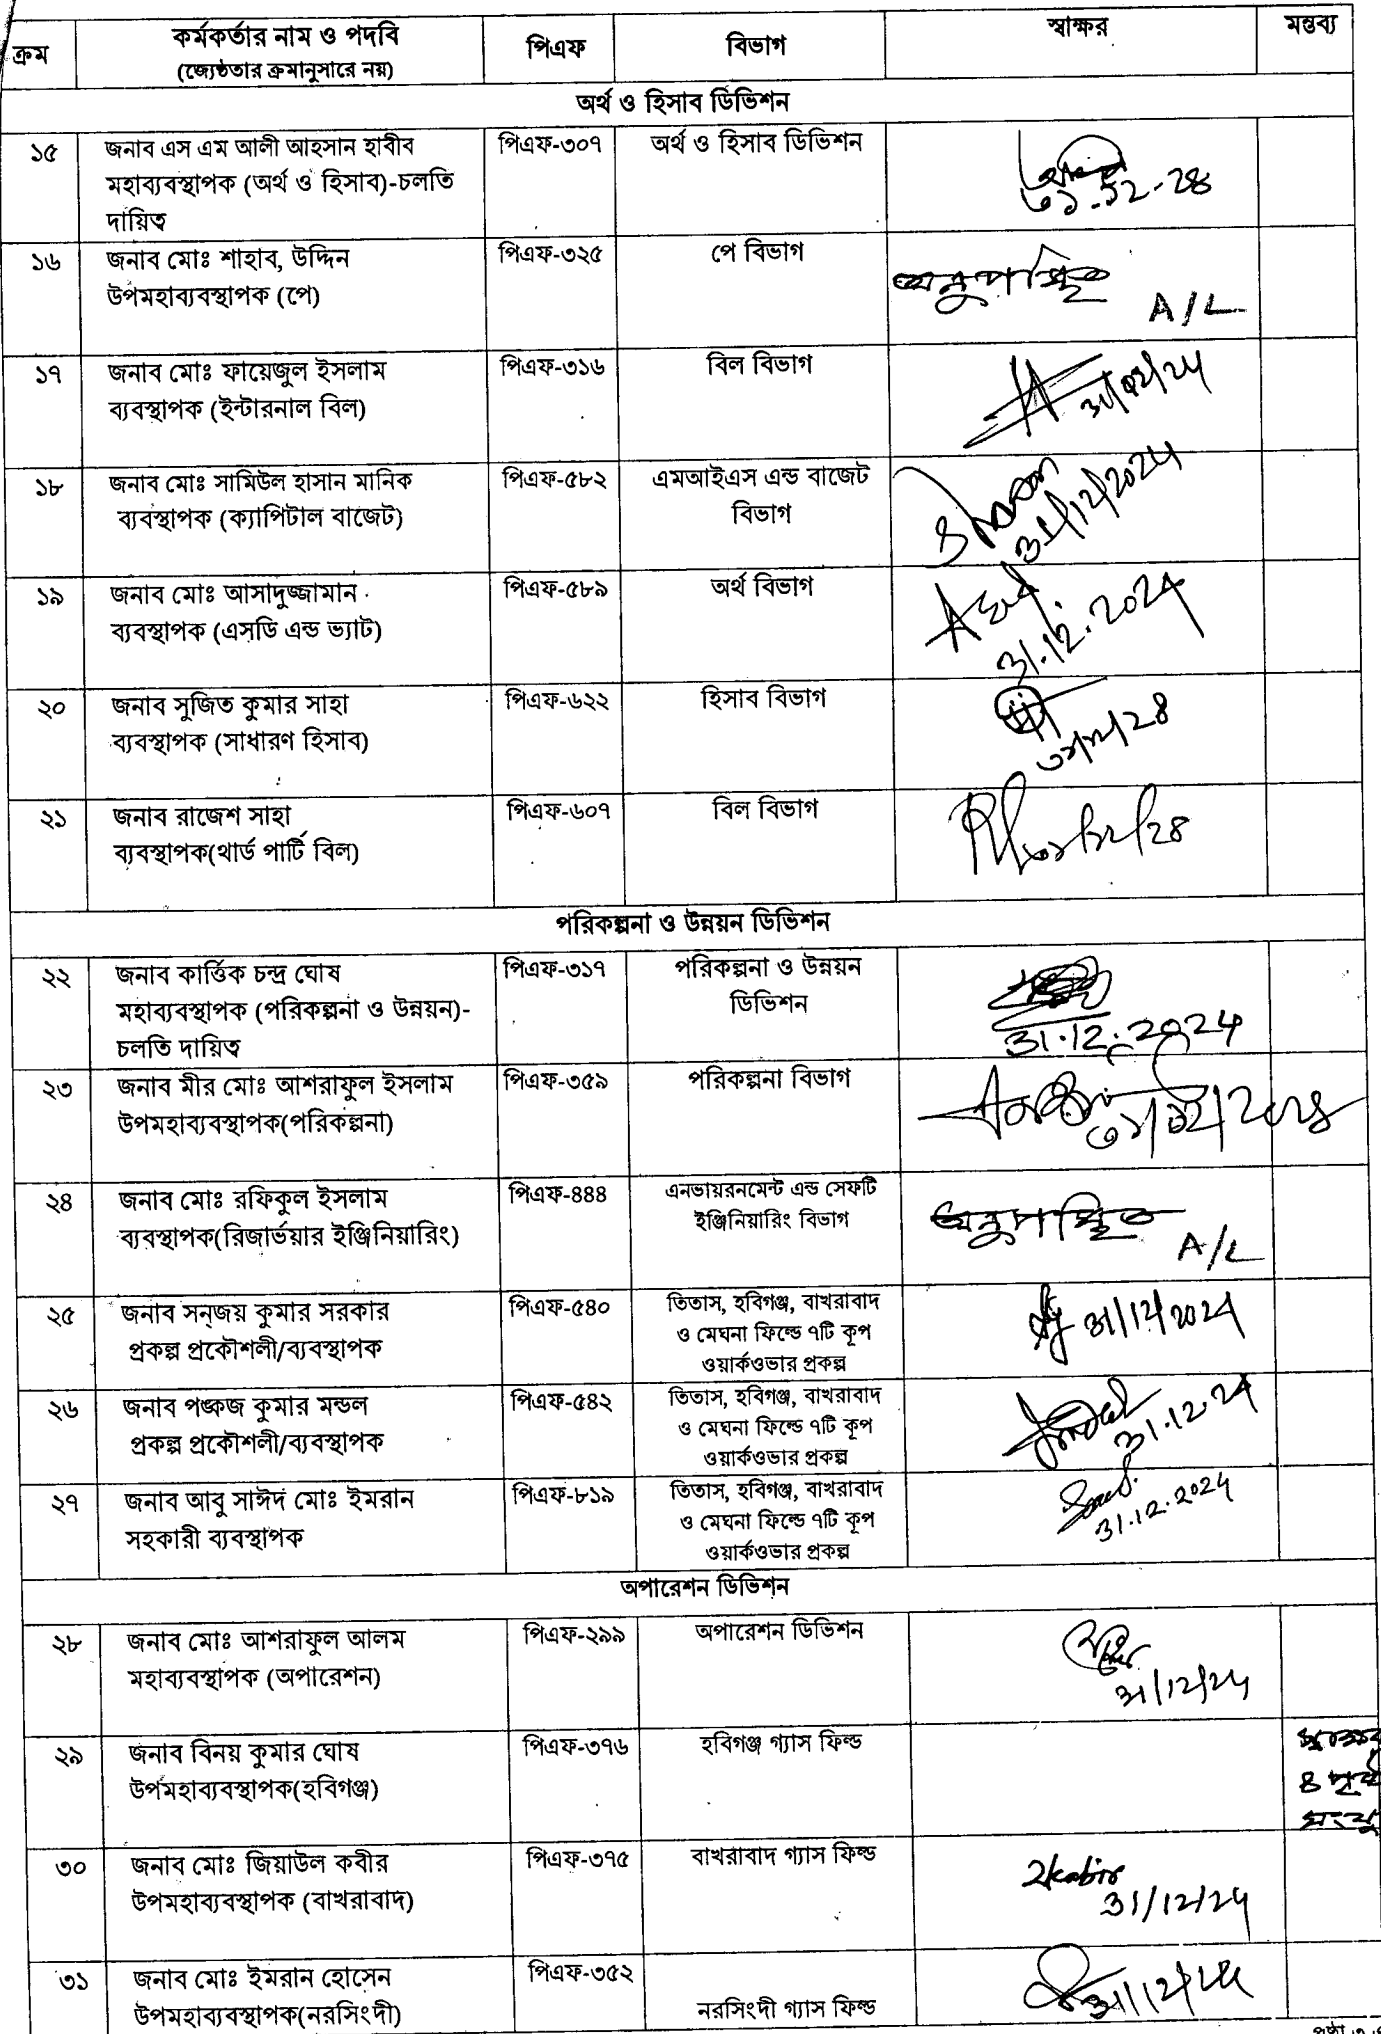 ক্রম
কর্মকর্তার নাম ও পদবি
(জ্যেষ্ঠতার ক্রমানুসারে নয়)
পিএফ
বিভাগ
স্বাক্ষর
মন্তব্য
অর্থ ও হিসাব ডিভিশন
১৫
জনাব এস এম আলী আহসান হাবীব
মহাব্যবস্থাপক (অর্থ ও হিসাব)-চলতি
দায়িত্ব
পিএফ-৩০৭
অর্থ ও হিসাব ডিভিশন
৩১-১২-২৪
১৬
জনাব মোঃ শাহাব, উদ্দিন
উপমহাব্যবস্থাপক (পে)
পিএফ-৩২৫
পে বিভাগ
অনুপস্থিত
A/L
১৭
জনাব মোঃ ফায়েজুল ইসলাম
ব্যবস্থাপক (ইন্টারনাল বিল)
পিএফ-৩১৬
বিল বিভাগ
১৮
জনাব মোঃ সামিউল হাসান মানিক
ব্যবস্থাপক (ক্যাপিটাল বাজেট)
পিএফ-৫৮২
এমআইএস এন্ড বাজেট
বিভাগ
31/12/2024
১৯
জনাব মোঃ আসাদুজ্জামান
ব্যবস্থাপক (এসডি এন্ড ভ্যাট)
পিএফ-৫৮৯
অর্থ বিভাগ
31.12.2024
২০
জনাব সুজিত কুমার সাহা
ব্যবস্থাপক (সাধারণ হিসাব)
পিএফ-৬২২
হিসাব বিভাগ
২১
জনাব রাজেশ সাহা
ব্যবস্থাপক(থার্ড পার্টি বিল)
পিএফ-৬০৭
বিল বিভাগ
পরিকল্পনা ও উন্নয়ন ডিভিশন
২২
জনাব কার্ত্তিক চন্দ্র ঘোষ
মহাব্যবস্থাপক (পরিকল্পনা ও উন্নয়ন)-
চলতি দায়িত্ব
পিএফ-৩১৭
পরিকল্পনা ও উন্নয়ন
ডিভিশন
31.12.2024
২৩
জনাব মীর মোঃ আশরাফুল ইসলাম
উপমহাব্যবস্থাপক(পরিকল্পনা)
পিএফ-৩৫৯
পরিকল্পনা বিভাগ
৩১/১২/২০২৪
২৪
জনাব মোঃ রফিকুল ইসলাম
ব্যবস্থাপক(রিজার্ভয়ার ইঞ্জিনিয়ারিং)
পিএফ-৪৪৪
এনভায়রনমেন্ট এন্ড সেফটি
ইঞ্জিনিয়ারিং বিভাগ
অনুপস্থিত
A/L
২৫
জনাব সন্‌জয় কুমার সরকার
প্রকল্প প্রকৌশলী/ব্যবস্থাপক
পিএফ-৫৪০
তিতাস, হবিগঞ্জ, বাখরাবাদ
ও মেঘনা ফিল্ডে ৭টি কূপ
ওয়ার্কওভার প্রকল্প
31/12/2024
২৬
জনাব পঙ্কজ কুমার মন্ডল
প্রকল্প প্রকৌশলী/ব্যবস্থাপক
পিএফ-৫৪২
তিতাস, হবিগঞ্জ, বাখরাবাদ
ও মেঘনা ফিল্ডে ৭টি কূপ
ওয়ার্কওভার প্রকল্প
31.12.24
২৭
জনাব আবু সাঈদ মোঃ ইমরান
সহকারী ব্যবস্থাপক
পিএফ-৮১৯
তিতাস, হবিগঞ্জ, বাখরাবাদ
ও মেঘনা ফিল্ডে ৭টি কূপ
ওয়ার্কওভার প্রকল্প
31.12.2024
অপারেশন ডিভিশন
২৮
জনাব মোঃ আশরাফুল আলম
মহাব্যবস্থাপক (অপারেশন)
পিএফ-২৯৯
অপারেশন ডিভিশন
31/12/24
২৯
জনাব বিনয় কুমার ঘোষ
উপমহাব্যবস্থাপক(হবিগঞ্জ)
পিএফ-৩৭৬
হবিগঞ্জ গ্যাস ফিল্ড
৩০
জনাব মোঃ জিয়াউল কবীর
উপমহাব্যবস্থাপক (বাখরাবাদ)
পিএফ-৩৭৫
বাখরাবাদ গ্যাস ফিল্ড
31/12/24
৩১
জনাব মোঃ ইমরান হোসেন
উপমহাব্যবস্থাপক(নরসিংদী)
পিএফ-৩৫২
নরসিংদী গ্যাস ফিল্ড
31/12/24